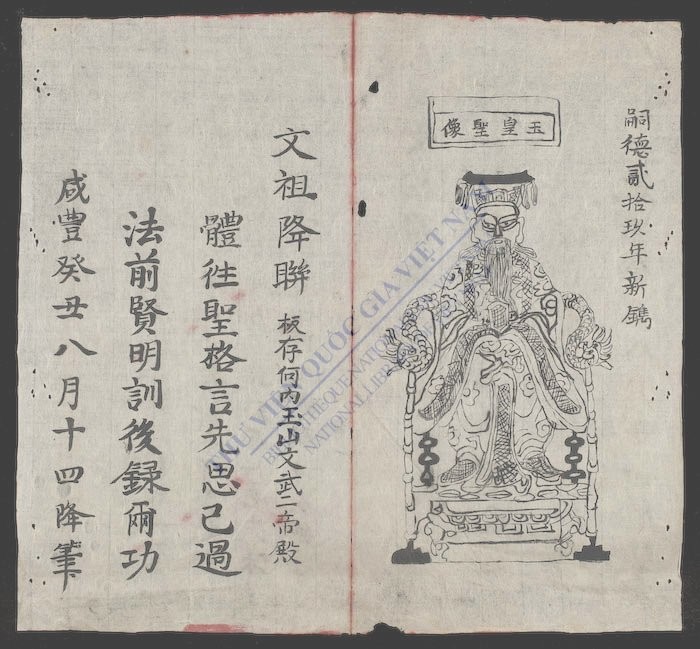 嗣德貳拾玖年新鐫
玉皇聖像
文祖降聯
板存何內玉山文武二帝殿
體往聖格言先思己過
法前賢明訓後録爾功
咸豐癸丑八月十四降筆
THƯ VIỆN QUỐC GIA VIỆT NAM